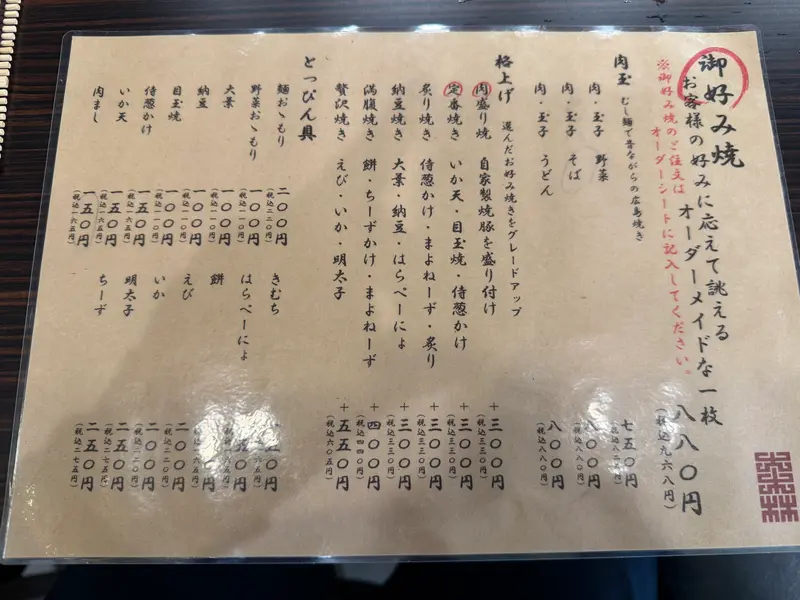 御好み焼
お客様の好みに応えて誂える
オーダーメイドな一枚 八八〇円
(税込九六八円)
※御好み焼のご注文は
オーダーシートに記入してください。
肉玉 むし麺で昔ながらの広島焼き
肉・玉子 野菜 七五〇円
(税込八二五円)
肉・玉子 そば 八〇〇円
(税込八八〇円)
肉・玉子 うどん 八〇〇円
(税込八八〇円)
格上げ 選んだお好み焼きをグレードアップ
肉盛り焼 自家製焼豚を盛り付け +三〇〇円
(税込三三〇円)
定番焼き いか天・目玉焼・侍葱かけ +三〇〇円
(税込三三〇円)
炙り焼き 侍葱かけ・まよねーず・炙り +三〇〇円
(税込三三〇円)
納豆焼き 大葉・納豆・はらぺーにょ +三〇〇円
(税込三三〇円)
満腹焼き 餅・ちーずかけ・まよねーず +四〇〇円
(税込四四〇円)
贅沢焼き えび・いか・明太子 +五五〇円
(税込六〇五円)
とっぴん具
麺おゝもり 二〇〇円
(税込二二〇円)
野菜おゝもり 一〇〇円
(税込一一〇円)
大葉 一〇〇円
(税込一一〇円)
納豆 一〇〇円
(税込一一〇円)
目玉焼 一〇〇円
(税込一一〇円)
侍葱かけ 一五〇円
(税込一六五円)
いか天 一五〇円
(税込一六五円)
肉まし 一五〇円
(税込一六五円)
きむち 五〇円
はらぺーにょ 五〇円
餅 〇〇円
えび 二〇〇円
(税込二二〇円)
いか 二〇〇円
(税込二二〇円)
明太子 二五〇円
(税込二七五円)
ちーず 二五〇円
(税込二七五円)